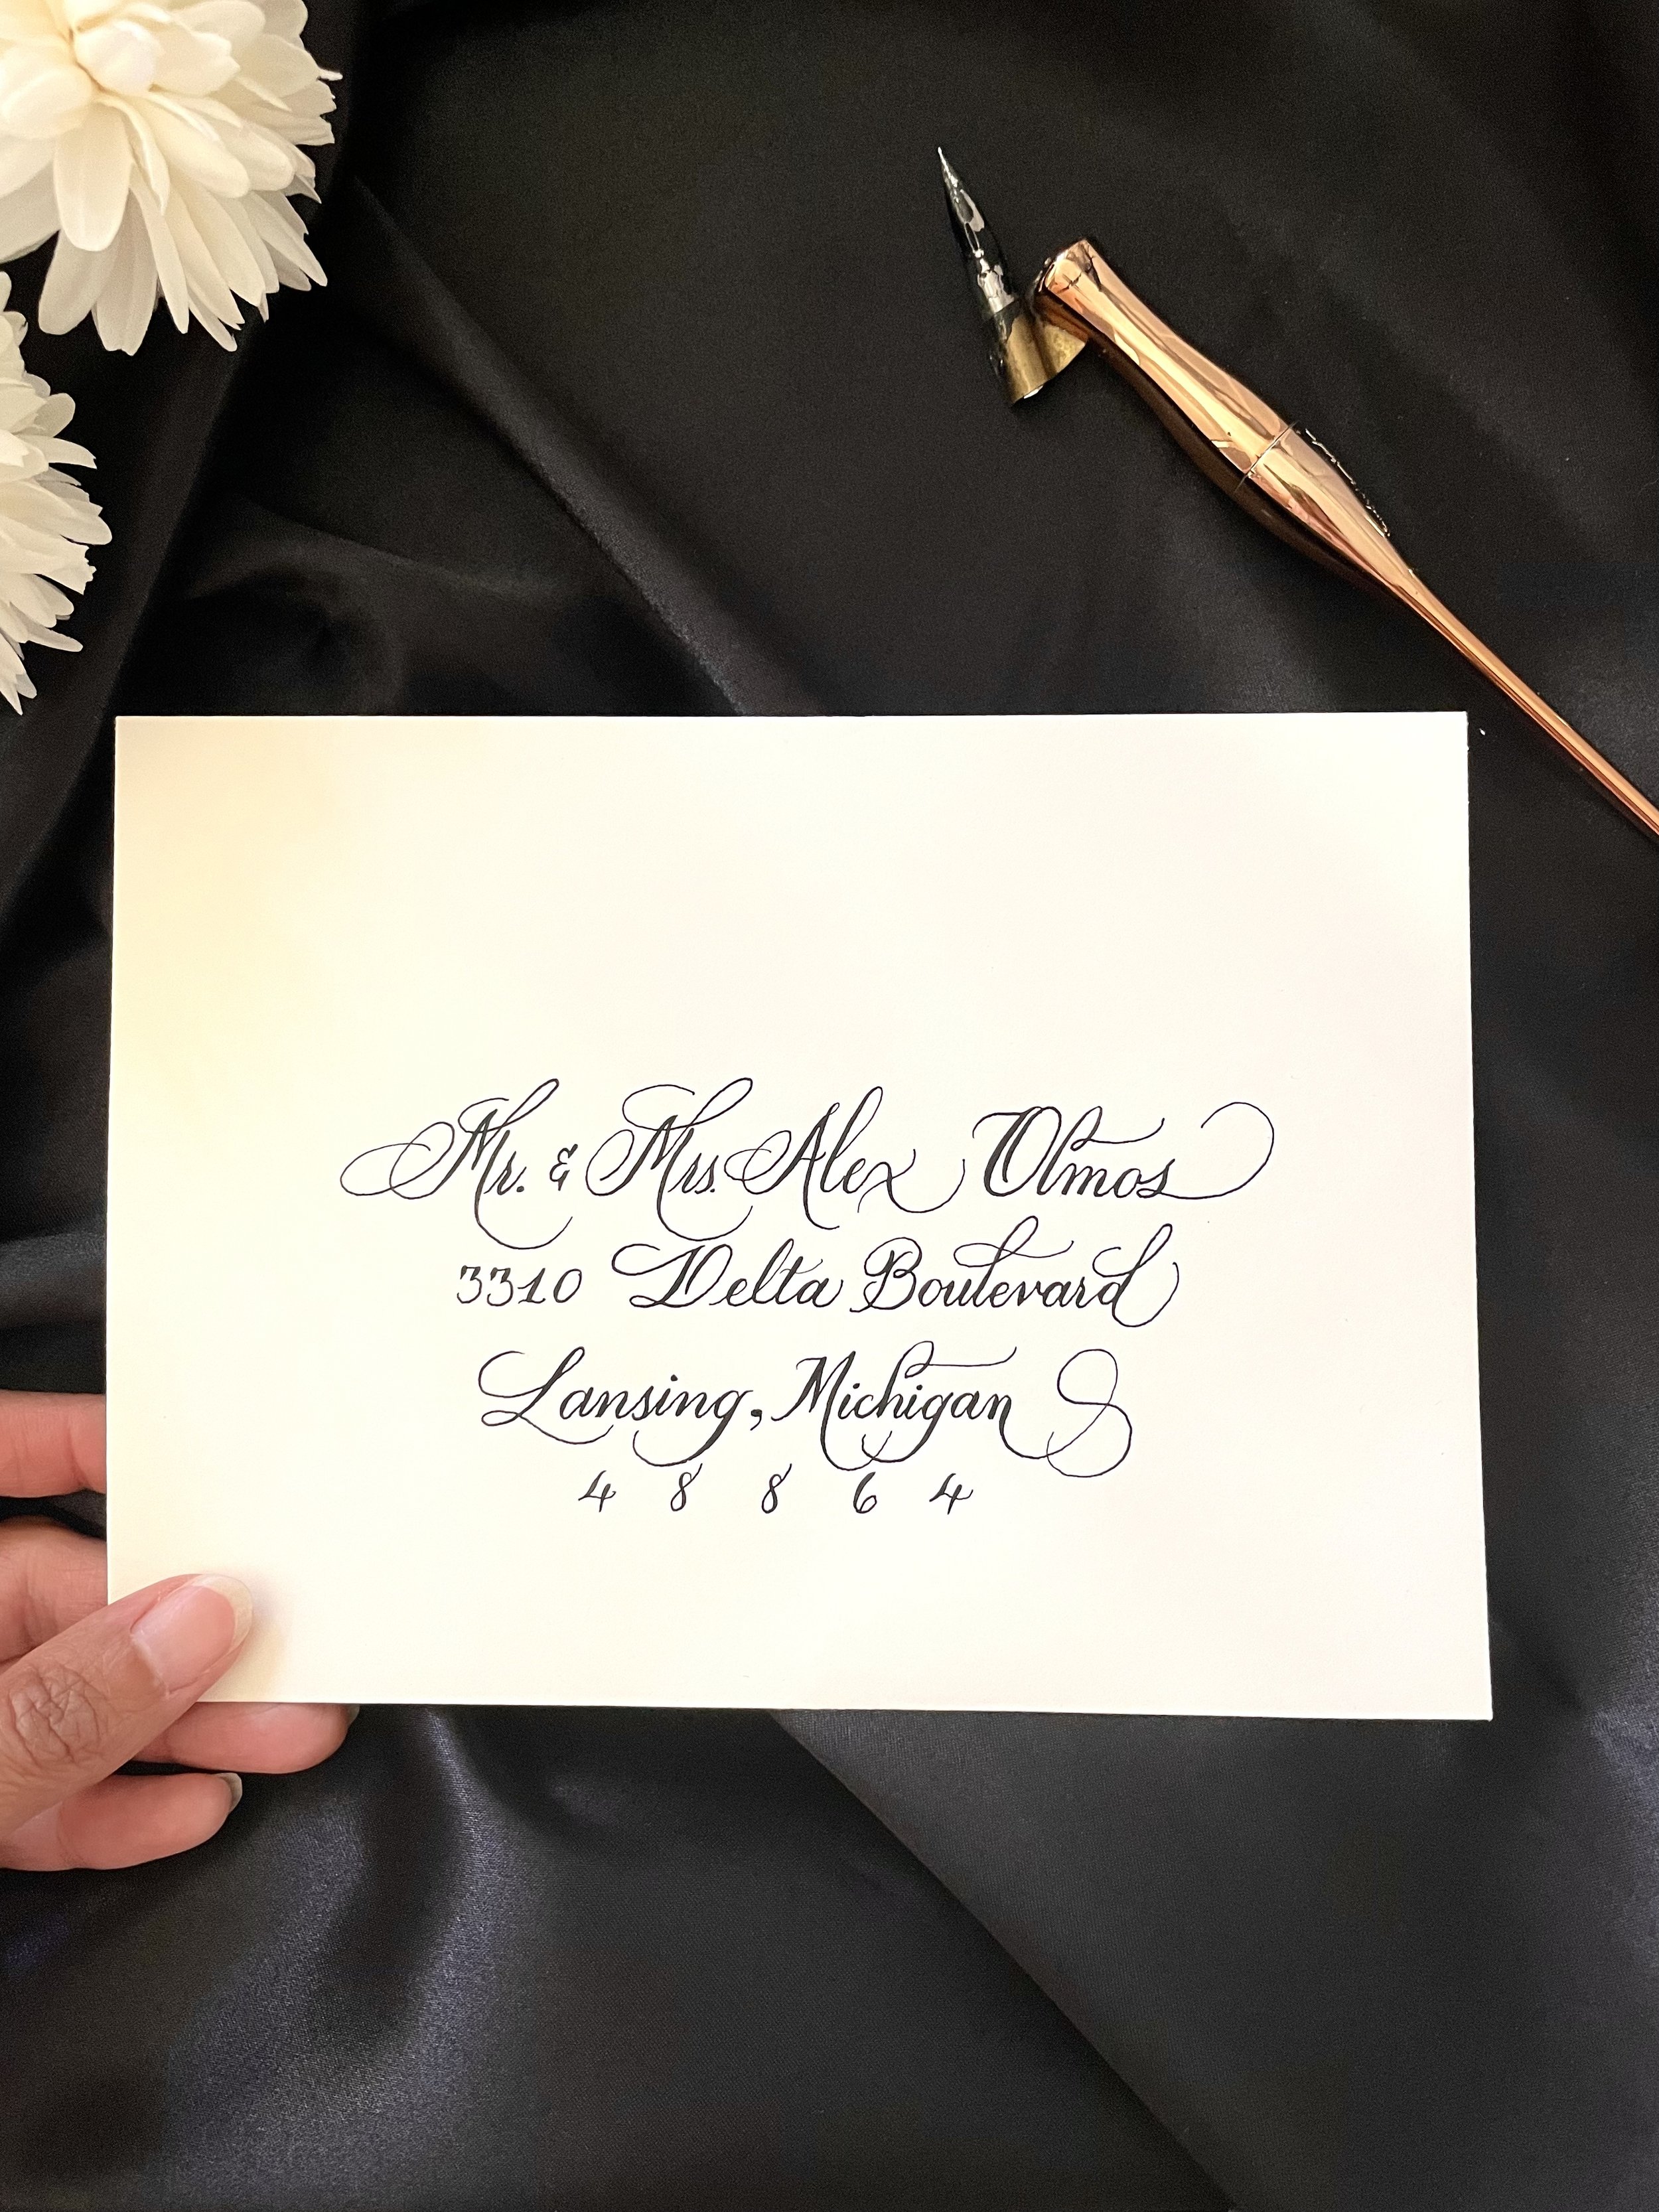 Mr. & Mrs. Alex Olmos
3310 Delta Boulevard
Lansing, Michigan
4 8 8 6 4